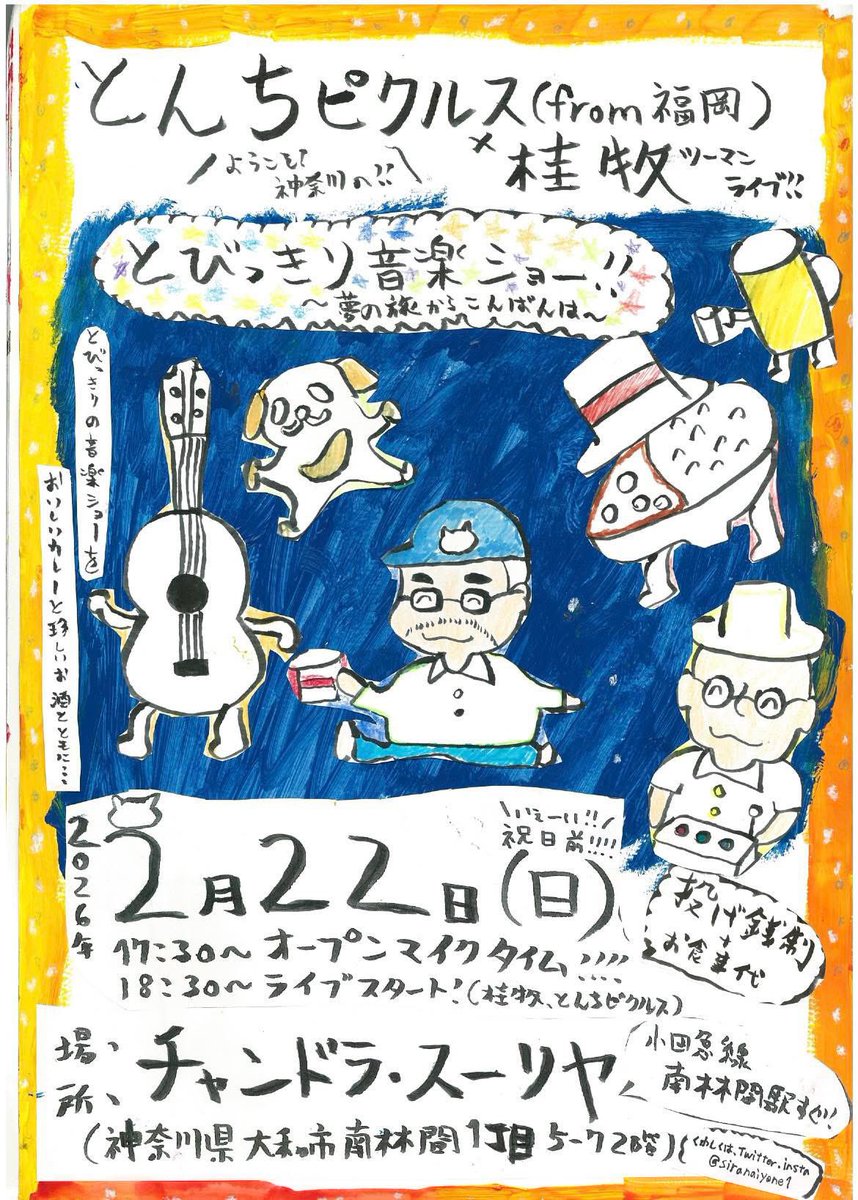 とんちピクルス(from福岡)
ようこそ!
神奈川へ!!
×桂牧 ツーマン
ライブ!!
とびっきり音楽ショー!!
〜夢の旅からこんばんは〜
とびっきりの音楽ショーを
おいしいカレーと珍しいお酒とともに…
2026年
2月22日(日)
いぇーい!!
祝日前!!!!
17:30〜オープンマイクタイム!!!!
18:30〜ライブスタート!(桂牧、とんちピクルス)
投げ銭制
+
お食事代
場所、チャンドラ・スーリヤ
小田急線
南林間駅すぐ!!
(神奈川県大和市南林間1丁目5-7 2階)
くわしくは、Twitter.insta
@siranaiyone1